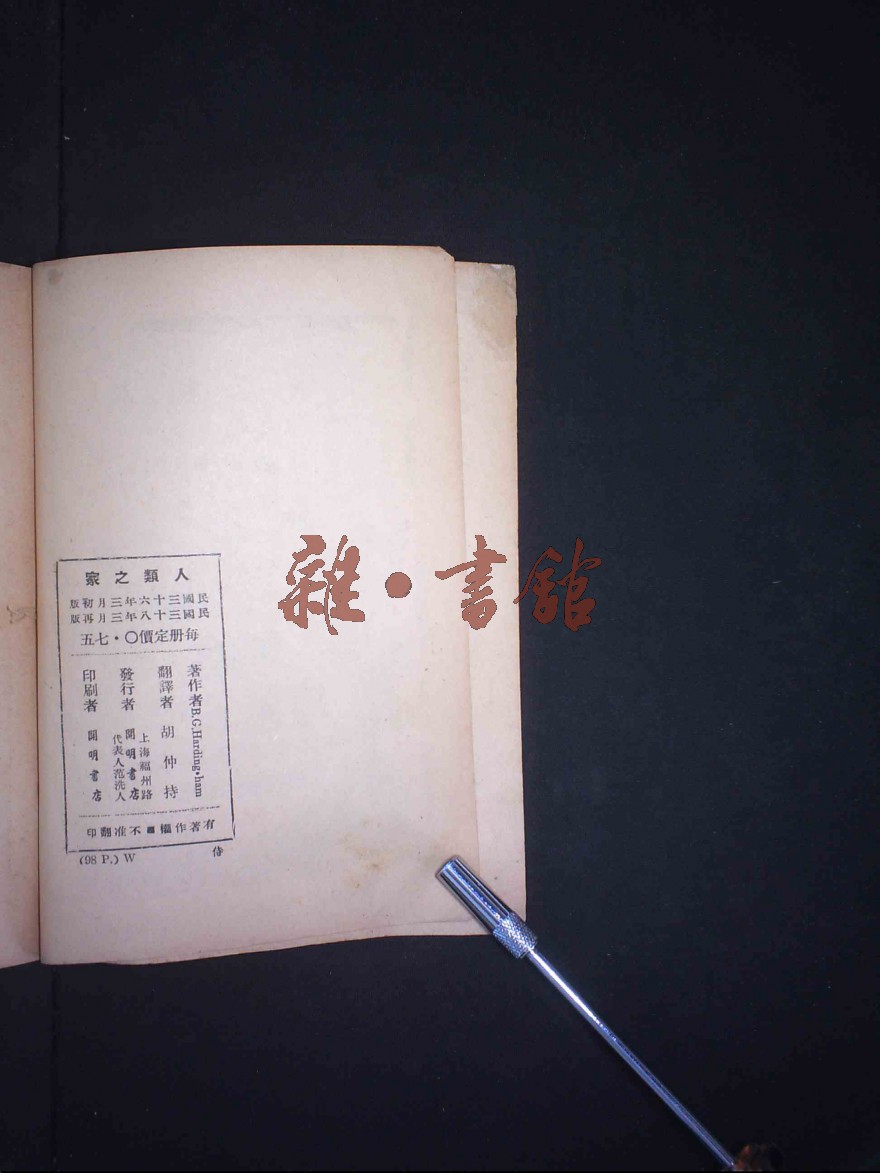 人類之家
民國三十六年三月初版
民國三十八年三月再版
每册定價〇·七五
著作者 B.C.Harding·ham
翻譯者 胡仲持
上海福州路
發行者 開明書店
代表人范洗人
印刷者 開明書店
有著作權■不准翻印
(98 P.) W
侍
雜·書館